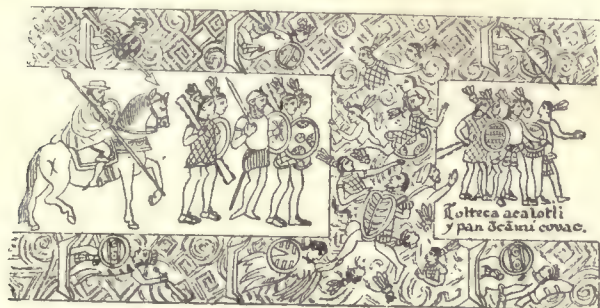 Tolteca acalotli
y pan ōcāmi covac.